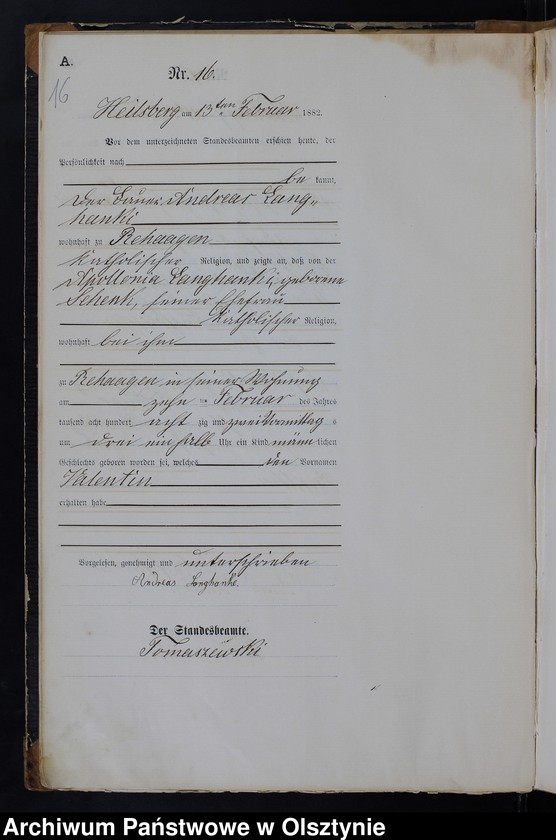 A.
16
Nr. 16.
Heilsberg am 13ten Februar 1882.
Vor dem unterzeichneten Standesbeamten erschien heute, der
Persönlichkeit nach
be kannt,
der Bauer Andreas Lang-
hanki
wohnhaft zu Rehaagen
katholischer Religion, und zeigte an, daß von der
Apollonia Langhanki, geborene
Schenk, seiner Ehefrau
katholischer Religion,
wohnhaft bei ihm
zu Rehaagen in seiner Wohnung
am zehn ten Februar des Jahres
tausend acht hundert acht zig und zwei Vormittag s
um drei ein halb Uhr ein Kind männ lichen
Geschlechts geboren worden sei, welches den Vornamen
Valentin
erhalten habe
Vorgelesen, genehmigt und unterschrieben
Andreas Langhanki.
Der Standesbeamte.
Tomaszewski
Archiwum Państwowe w Olsztynie